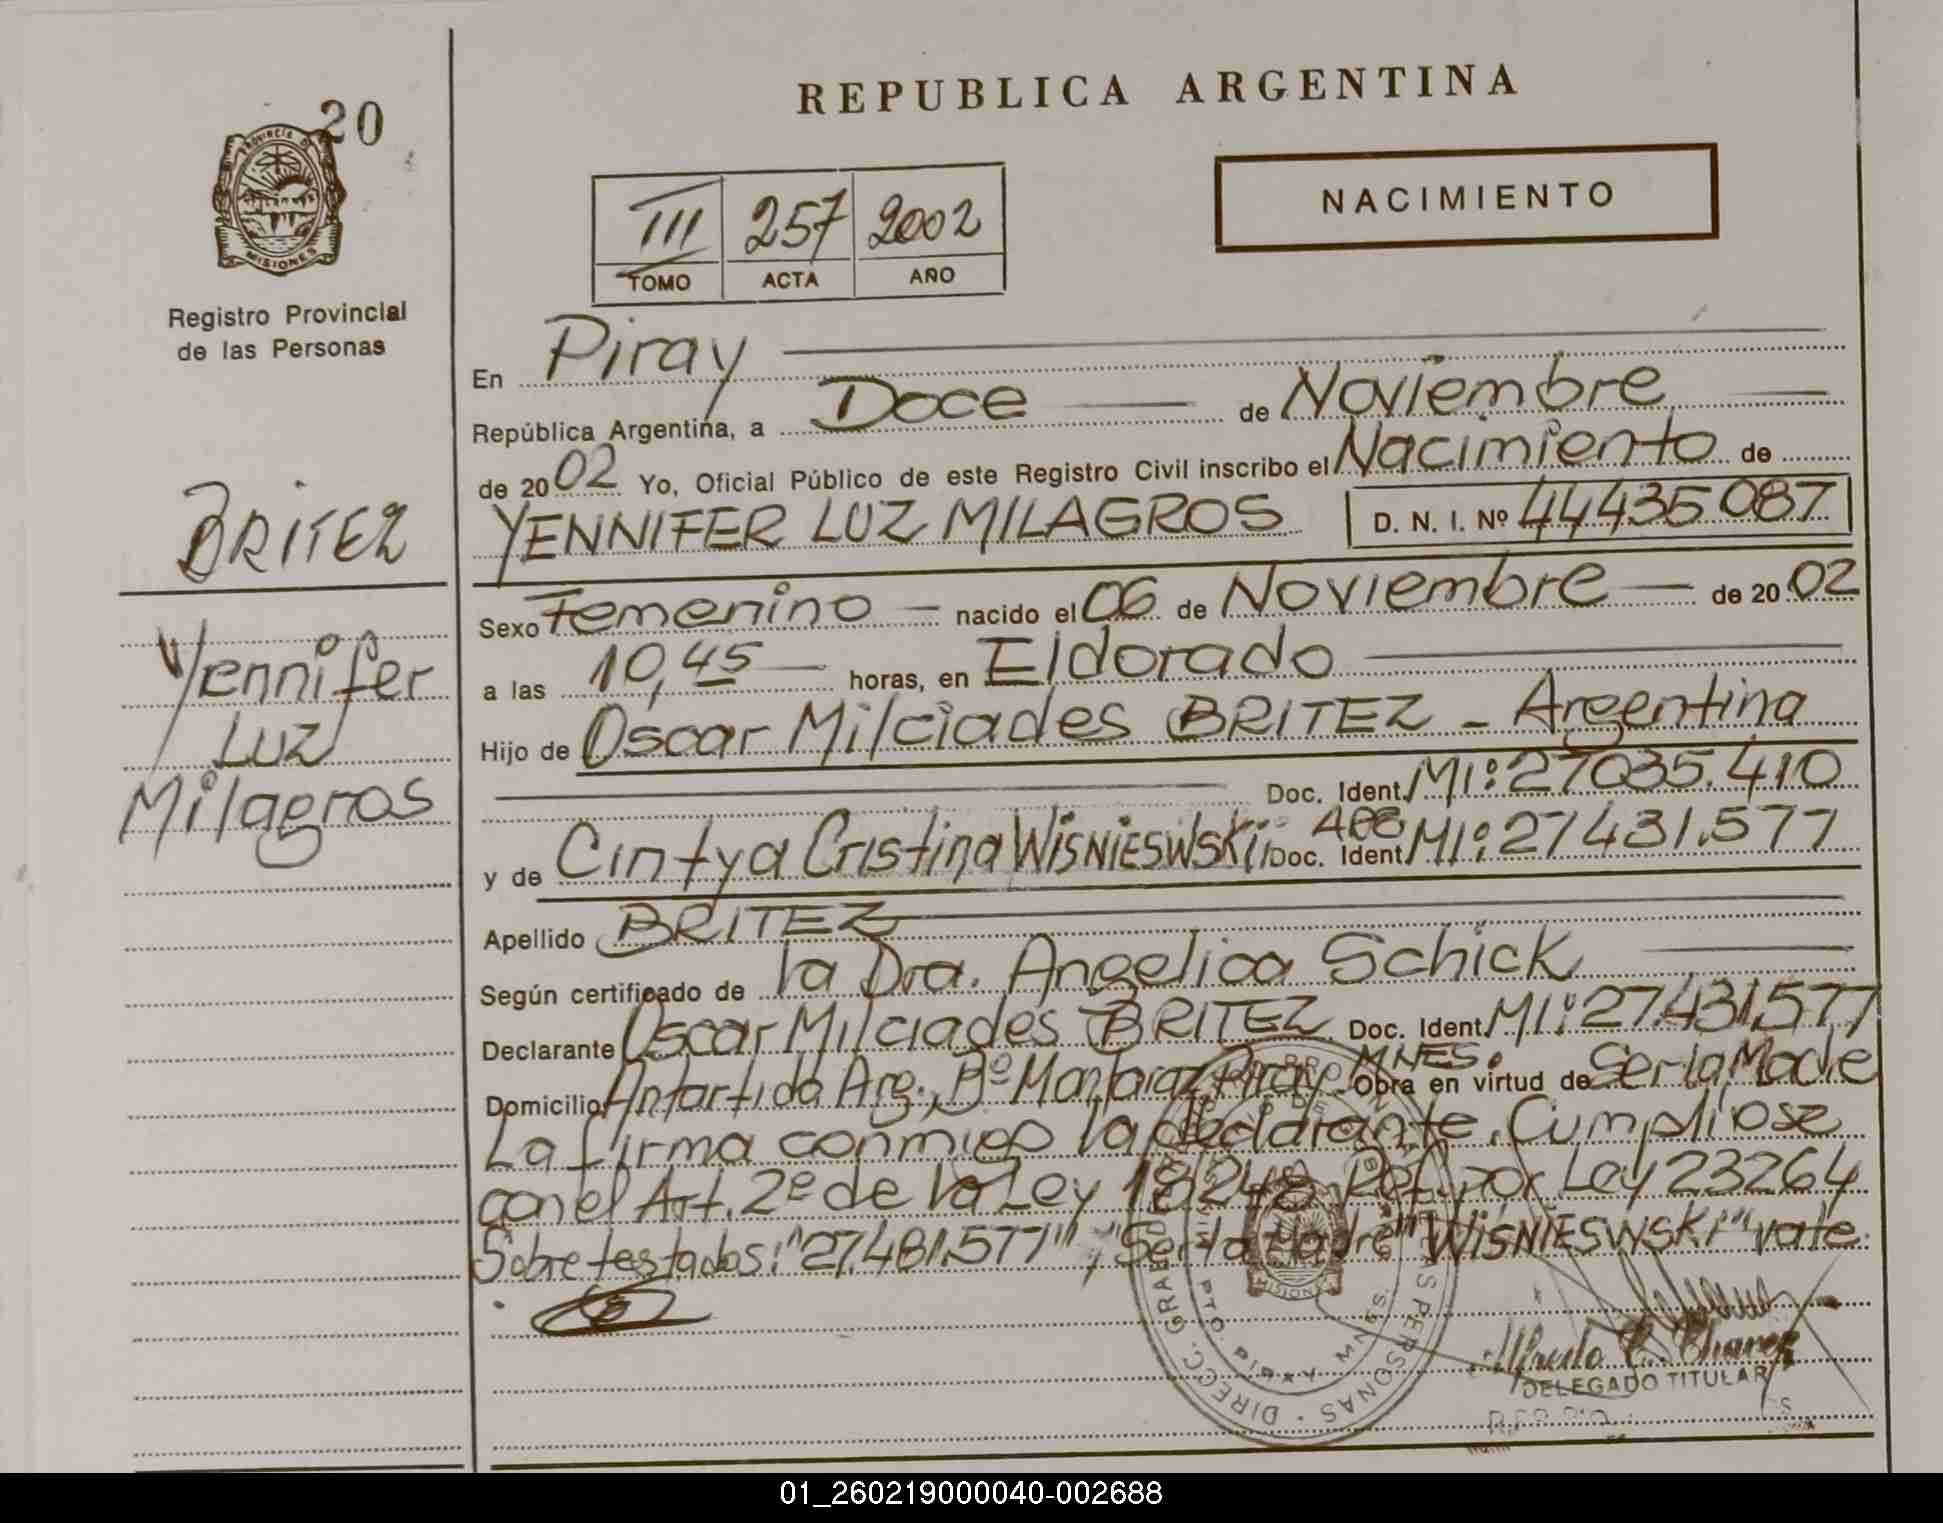 20
PROVINCIA DE
MISIONES
Registro Provincial
de las Personas
BRITEZ
Yennifer
Luz
Milagros
REPUBLICA ARGENTINA
NACIMIENTO
III 257 2002
TOMO ACTA AÑO
En Piray
República Argentina, a Doce de Noviembre
de 2002 Yo, Oficial Público de este Registro Civil inscribo el Nacimiento de
YENNIFER LUZ MILAGROS D. N. I. Nº 44435087
Sexo Femenino nacido el 06 de Noviembre de 2002
a las 10,45 horas, en Eldorado
Hijo de Oscar Milciades BRITEZ - Argentina
Doc. Ident. MI: 27035.410
y de Cintya Cristina WiSNiESWSKi Doc. Ident. MI: 27431.577
Apellido BRITEZ
Según certificado de la Dra. Angelica Schick
Declarante Oscar Milciades BRITEZ Doc. Ident. MI: 27.431.577
Domicilio Antartida Arg., Bº Montaraz, Piray MNES. Obra en virtud de Ser la Madre
La firma conmigo la declarante. Cumpliose
con el Art. 2º de la Ley 18248 Ref. por Ley 23264
Sobre testados: "27.431.577", "Ser la Madre" "WiSNiESWSKi" vale.
Alfredo C. Chavez
DELEGADO TITULAR
DIRECC. GRAL. PERSONAS
PTO. PIRAY MNES.
MISIONES
01_260219000040-002688